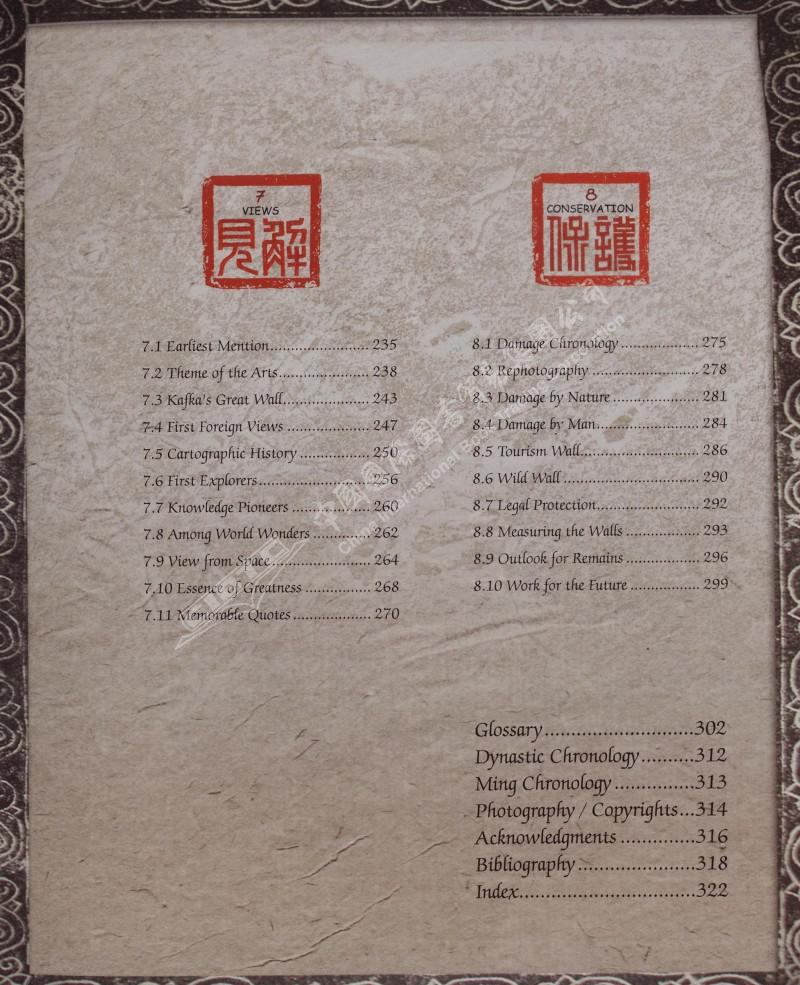 7
VIEWS
見解
7.1 Earliest Mention........................ 235
7.2 Theme of the Arts...................... 238
7.3 Kafka's Great Wall..................... 243
7.4 First Foreign Views .................... 247
7.5 Cartographic History ................. 250
7.6 First Explorers........................... 256
7.7 Knowledge Pioneers ................... 260
7.8 Among World Wonders .............. 262
7.9 View from Space........................ 264
7.10 Essence of Greatness ................ 268
7.11 Memorable Quotes................... 270
8
CONSERVATION
保護
8.1 Damage Chronology ................... 275
8.2 Rephotography .......................... 278
8.3 Damage by Nature ..................... 281
8.4 Damage by Man......................... 284
8.5 Tourism Wall............................. 286
8.6 Wild Wall ................................. 290
8.7 Legal Protection......................... 292
8.8 Measuring the Walls .................. 293
8.9 Outlook for Remains .................. 296
8.10 Work for the Future ................. 299
Glossary............................302
Dynastic Chronology..........312
Ming Chronology ...............313
Photography / Copyrights...314
Acknowledgments ..............316
Bibliography ......................318
Index.................................322